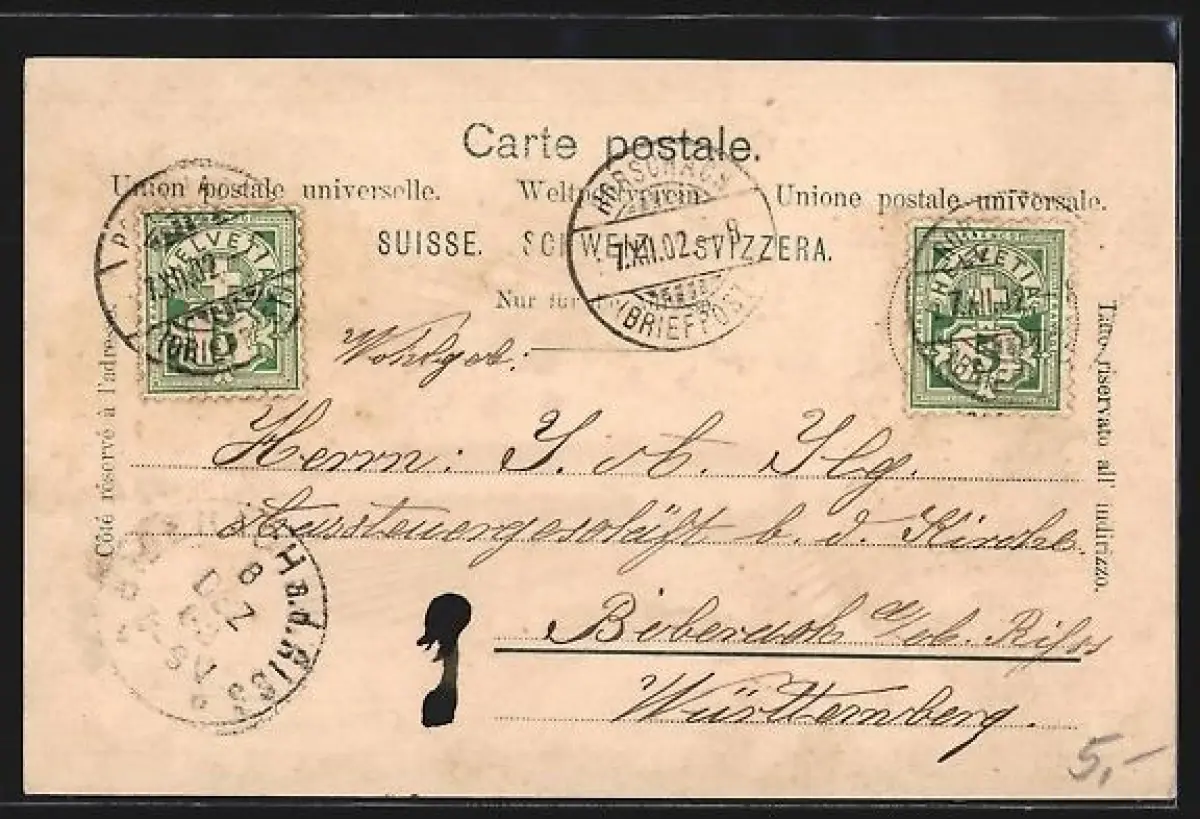 Carte postale.
Union postale universelle. Weltpostverein Unione postale universale.
SUISSE. SCHWEIZ. SVIZZERA.
Nur für
Côté réservé à l'adresse.
Lato riservato all' indirizzo.
HELVETIA
HELVETIA
5
7.XII.02
(BRIEF
RORSCHACH
7.XII.02. 8
(BRIEFPOST)
7.XII.02
Wohlgeb:
Herrn: J. A. Ilg.
Aussteuergeschäft b. d. Kirche.
Biberach a/d. Riss
Württemberg.
CH a.d. Riss
8 DEZ
5,-